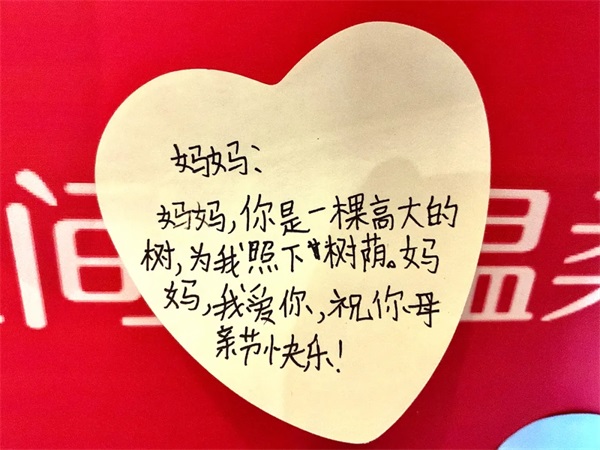 妈妈:
妈妈,你是一棵高大的
树,为我照下树荫。妈
妈,我爱你,祝你母
亲节快乐!
间
温